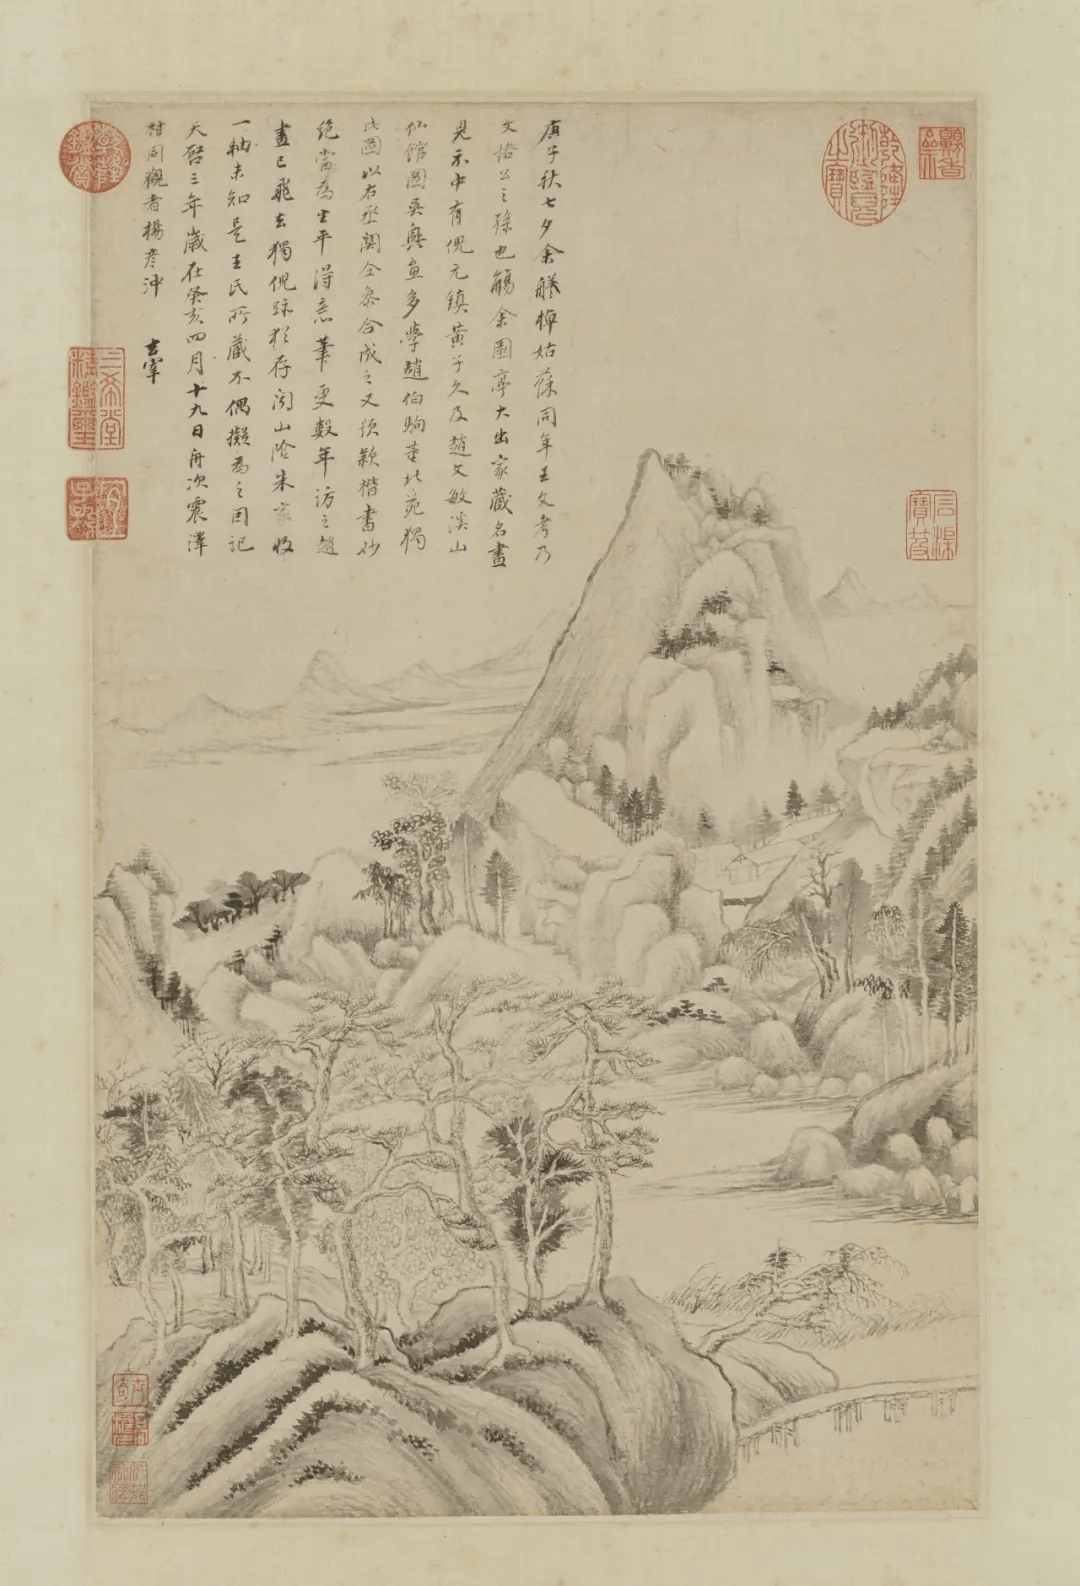 乾隆御覽之寶
石渠寶笈
庚子秋七夕余艤棹姑蘇同年王文考乃
文恪公之孫也觴余園亭大出家藏名畫
見示中有倪元鎮黃子久及趙文敏溪山
仙館圖吳興畫多學趙伯駒董北苑獨
此圖以右丞關仝叅合成之又款楷書妙
絕當為生平得意筆更數年訪之趙
畫已飛去獨倪跡猶存聞山陰朱家收
一軸未知是王氏所藏不偶擬為之因記
天啓三年歲在癸亥四月十九日舟次震澤
村同觀者楊彥沖 玄宰
乾隆鑑賞
三希堂精鑑璽
宜子孫